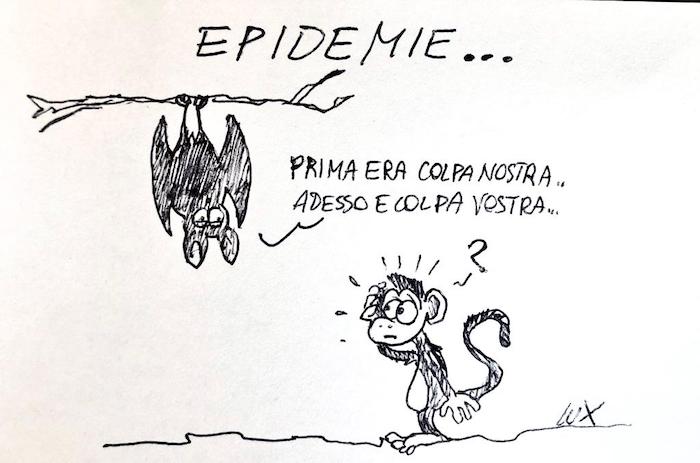 EPIDEMIE...
PRIMA ERA COLPA NOSTRA..
ADESSO E COLPA VOSTRA...
?
LUX